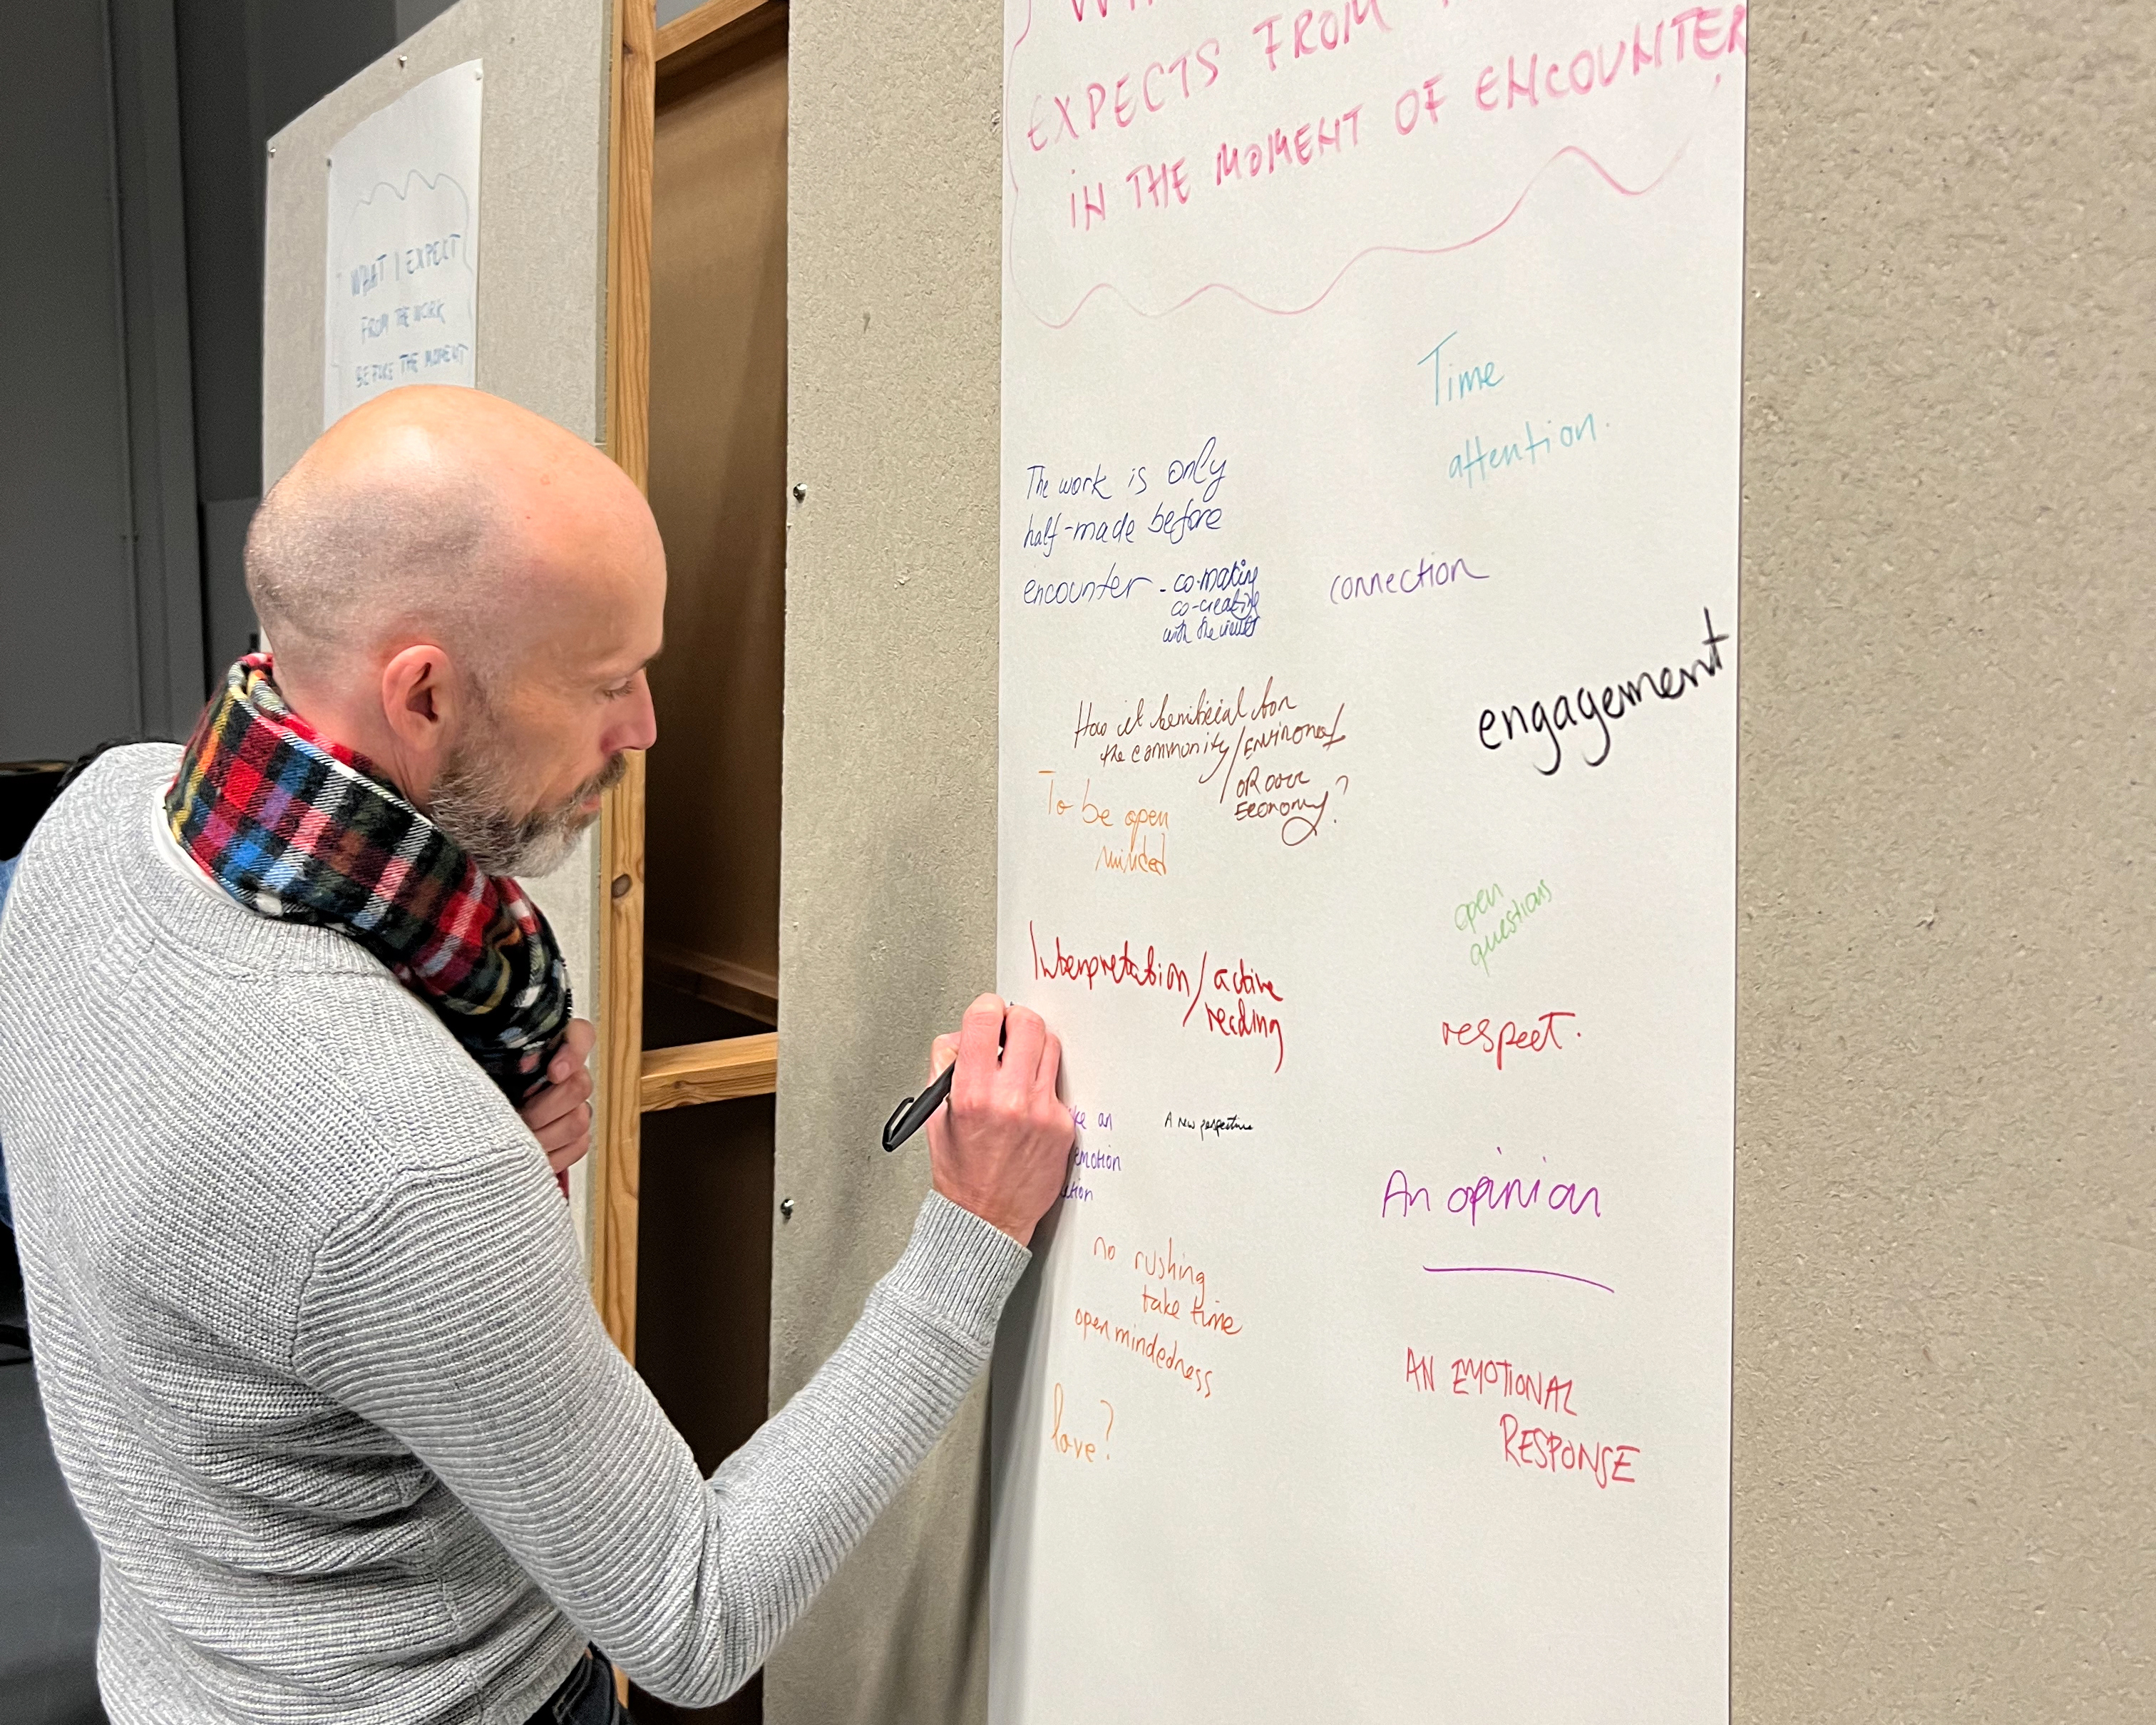 WHAT I EXPECT
FROM THE WORK
BEFORE THE MOMENT
EXPECTS FROM
IN THE MOMENT OF ENCOUNTER
Time
attention.
The work is only
half-made before
encounter - co-making
co-creating
with the
connection
engagement
the community/
OR OUR
ECONOMY?
To be open
minded
open
questions
Interpretation/active
reading
respect.
an
emotion
A new perspective
An opinion
no rushing
take time
open mindedness
AN EMOTIONAL
RESPONSE
love?